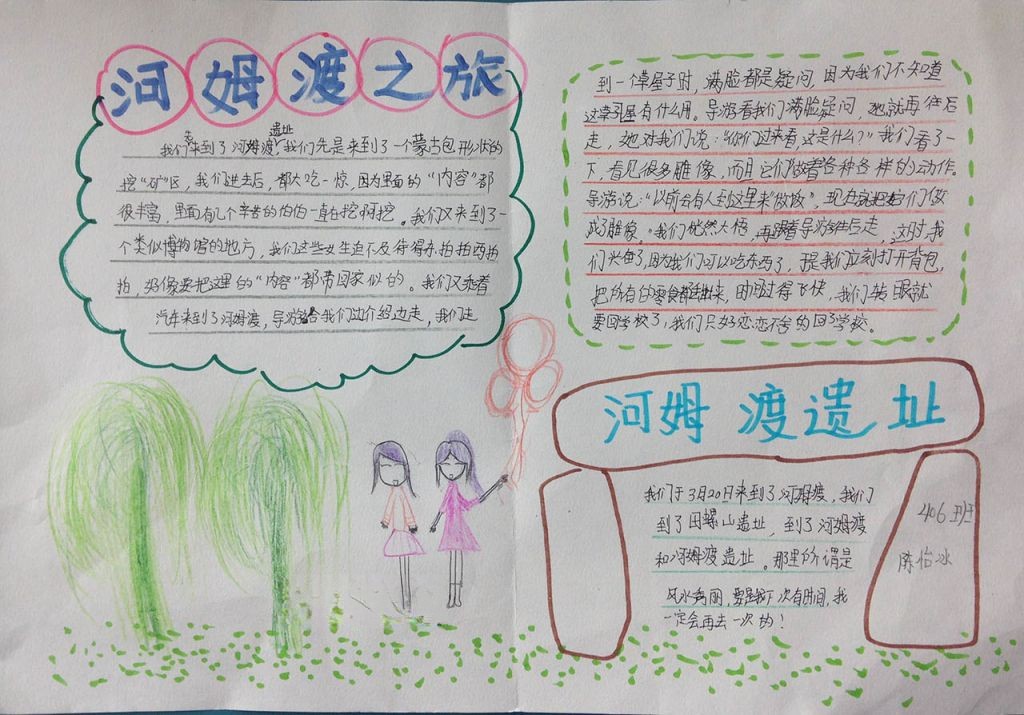 河姆渡之旅
我们来到了河姆渡遗址,我们先是来到了一个蒙古包形状的
挖“矿”区,我们进去后,都大吃一惊,因为里面的“内容”都
很丰富,里面有几个辛苦的伯伯一直在挖啊挖。我们又来到了一
个类似博物馆的地方,我们这些女生迫不及待得东拍拍西拍
拍,好像要把这里的“内容”都带回家似的。我们又乘着
汽车来到了河姆渡,导游给我们边介绍边走,我们走
到一个草屋子时,满脸都是疑问,因为我们不知道
这草屋有什么用。导游看我们满脸疑问,她就再往后
走,她对我们说:“你们过来看,这是什么?”我们看了一
下,看见很多雕像,而且它们做着各种各样的动作。
导游说:“以前会有人到这里来做饭”,现在就把它们做
成了雕像。”我们恍然大悟,再跟着导游往后走,这时,我
们兴奋了,因为我们可以吃东西了,于是我们立刻打开背包,
把所有的零食都拿出来,时间过得飞快,我们转眼就
要回学校了,我们只好恋恋不舍的回了学校。
河姆渡遗址
我们于3月20日来到了河姆渡,我们
到了田螺山遗址,到了河姆渡
和河姆渡遗址。那里所谓是
风水秀丽,要是下次有时间,我
一定会再去一次的!
406班
陈怡冰